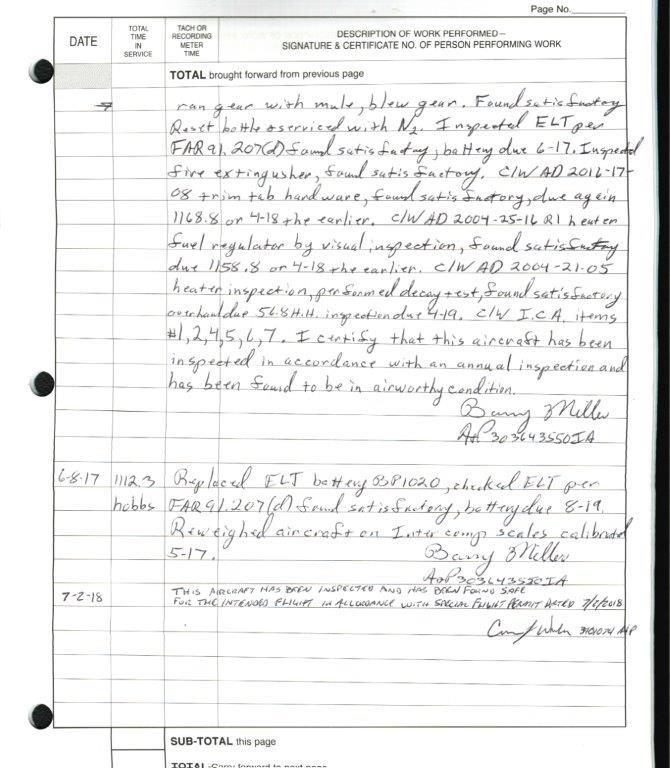 Page No.
DATE
TOTAL TIME IN SERVICE
TACH OR RECORDING METER TIME
DESCRIPTION OF WORK PERFORMED—
SIGNATURE & CERTIFICATE NO. OF PERSON PERFORMING WORK
TOTAL brought forward from previous page
ran gear with mule, blew gear. Found satisfactory
Reset bottle & serviced with N2. Inspected ELT per
FAR 91.207(d) found satisfactory, battery due 6-17. Inspected
fire extingusher, found satisfactory. C/W AD 2016-17-
08 trim tab hardware, found satisfactory, due again
1168.8 or 4-18 the earlier. C/W AD 2004-25-16 R1 heater
fuel regulator by visual inspection, found satisfactory
due 1158.8 or 4-18 the earlier. C/W AD 2004-21-05
heater inspection, performed decay test, found satisfactory
overhaul due 56.8 H.H. inspection due 4-19. C/W I.C.A. items
#1,2,4,5,6,7. I certify that this aircraft has been
inspected in accordance with an annual inspection and
has been found to be in airworthy condition.
Barry Miller
A&P 303643550IA
6-8-17 1112.3 Replaced ELT battery BP1020, checked ELT per
hobbs FAR 91.207(d) found satisfactory, battery due 8-19.
Reweighed aircraft on Intercomp scales calibrated
5-17. Barry Miller
A&P 303643550IA
7-2-18 THIS AIRCRAFT HAS BEEN INSPECTED AND HAS BEEN FOUND SAFE
FOR THE INTENDED FLIGHT IN ACCORDANCE WITH SPECIAL FLIGHT PERMIT DATED 7/2/2018
3101074 A&P
SUB-TOTAL this page
TOTAL-Carry forward to next page